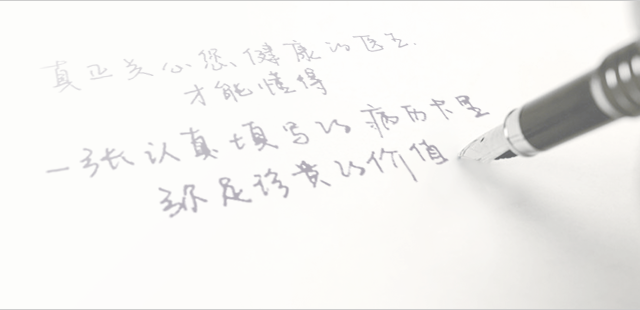 真正关心您健康的医生
才能懂得
一张认真填写的病历卡里
弥足珍贵的价值